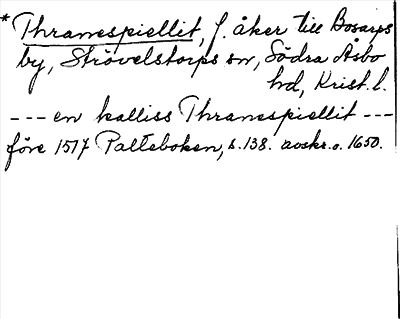 * Thranespiellit, f. åker till Bosarps
by, Strövelstorps sn, Södra Åsbo
hd, Krist. l.
--- en kalliss Thranespiellit ---
före 1517 Palteboken, s. 138. avskr. o. 1650.